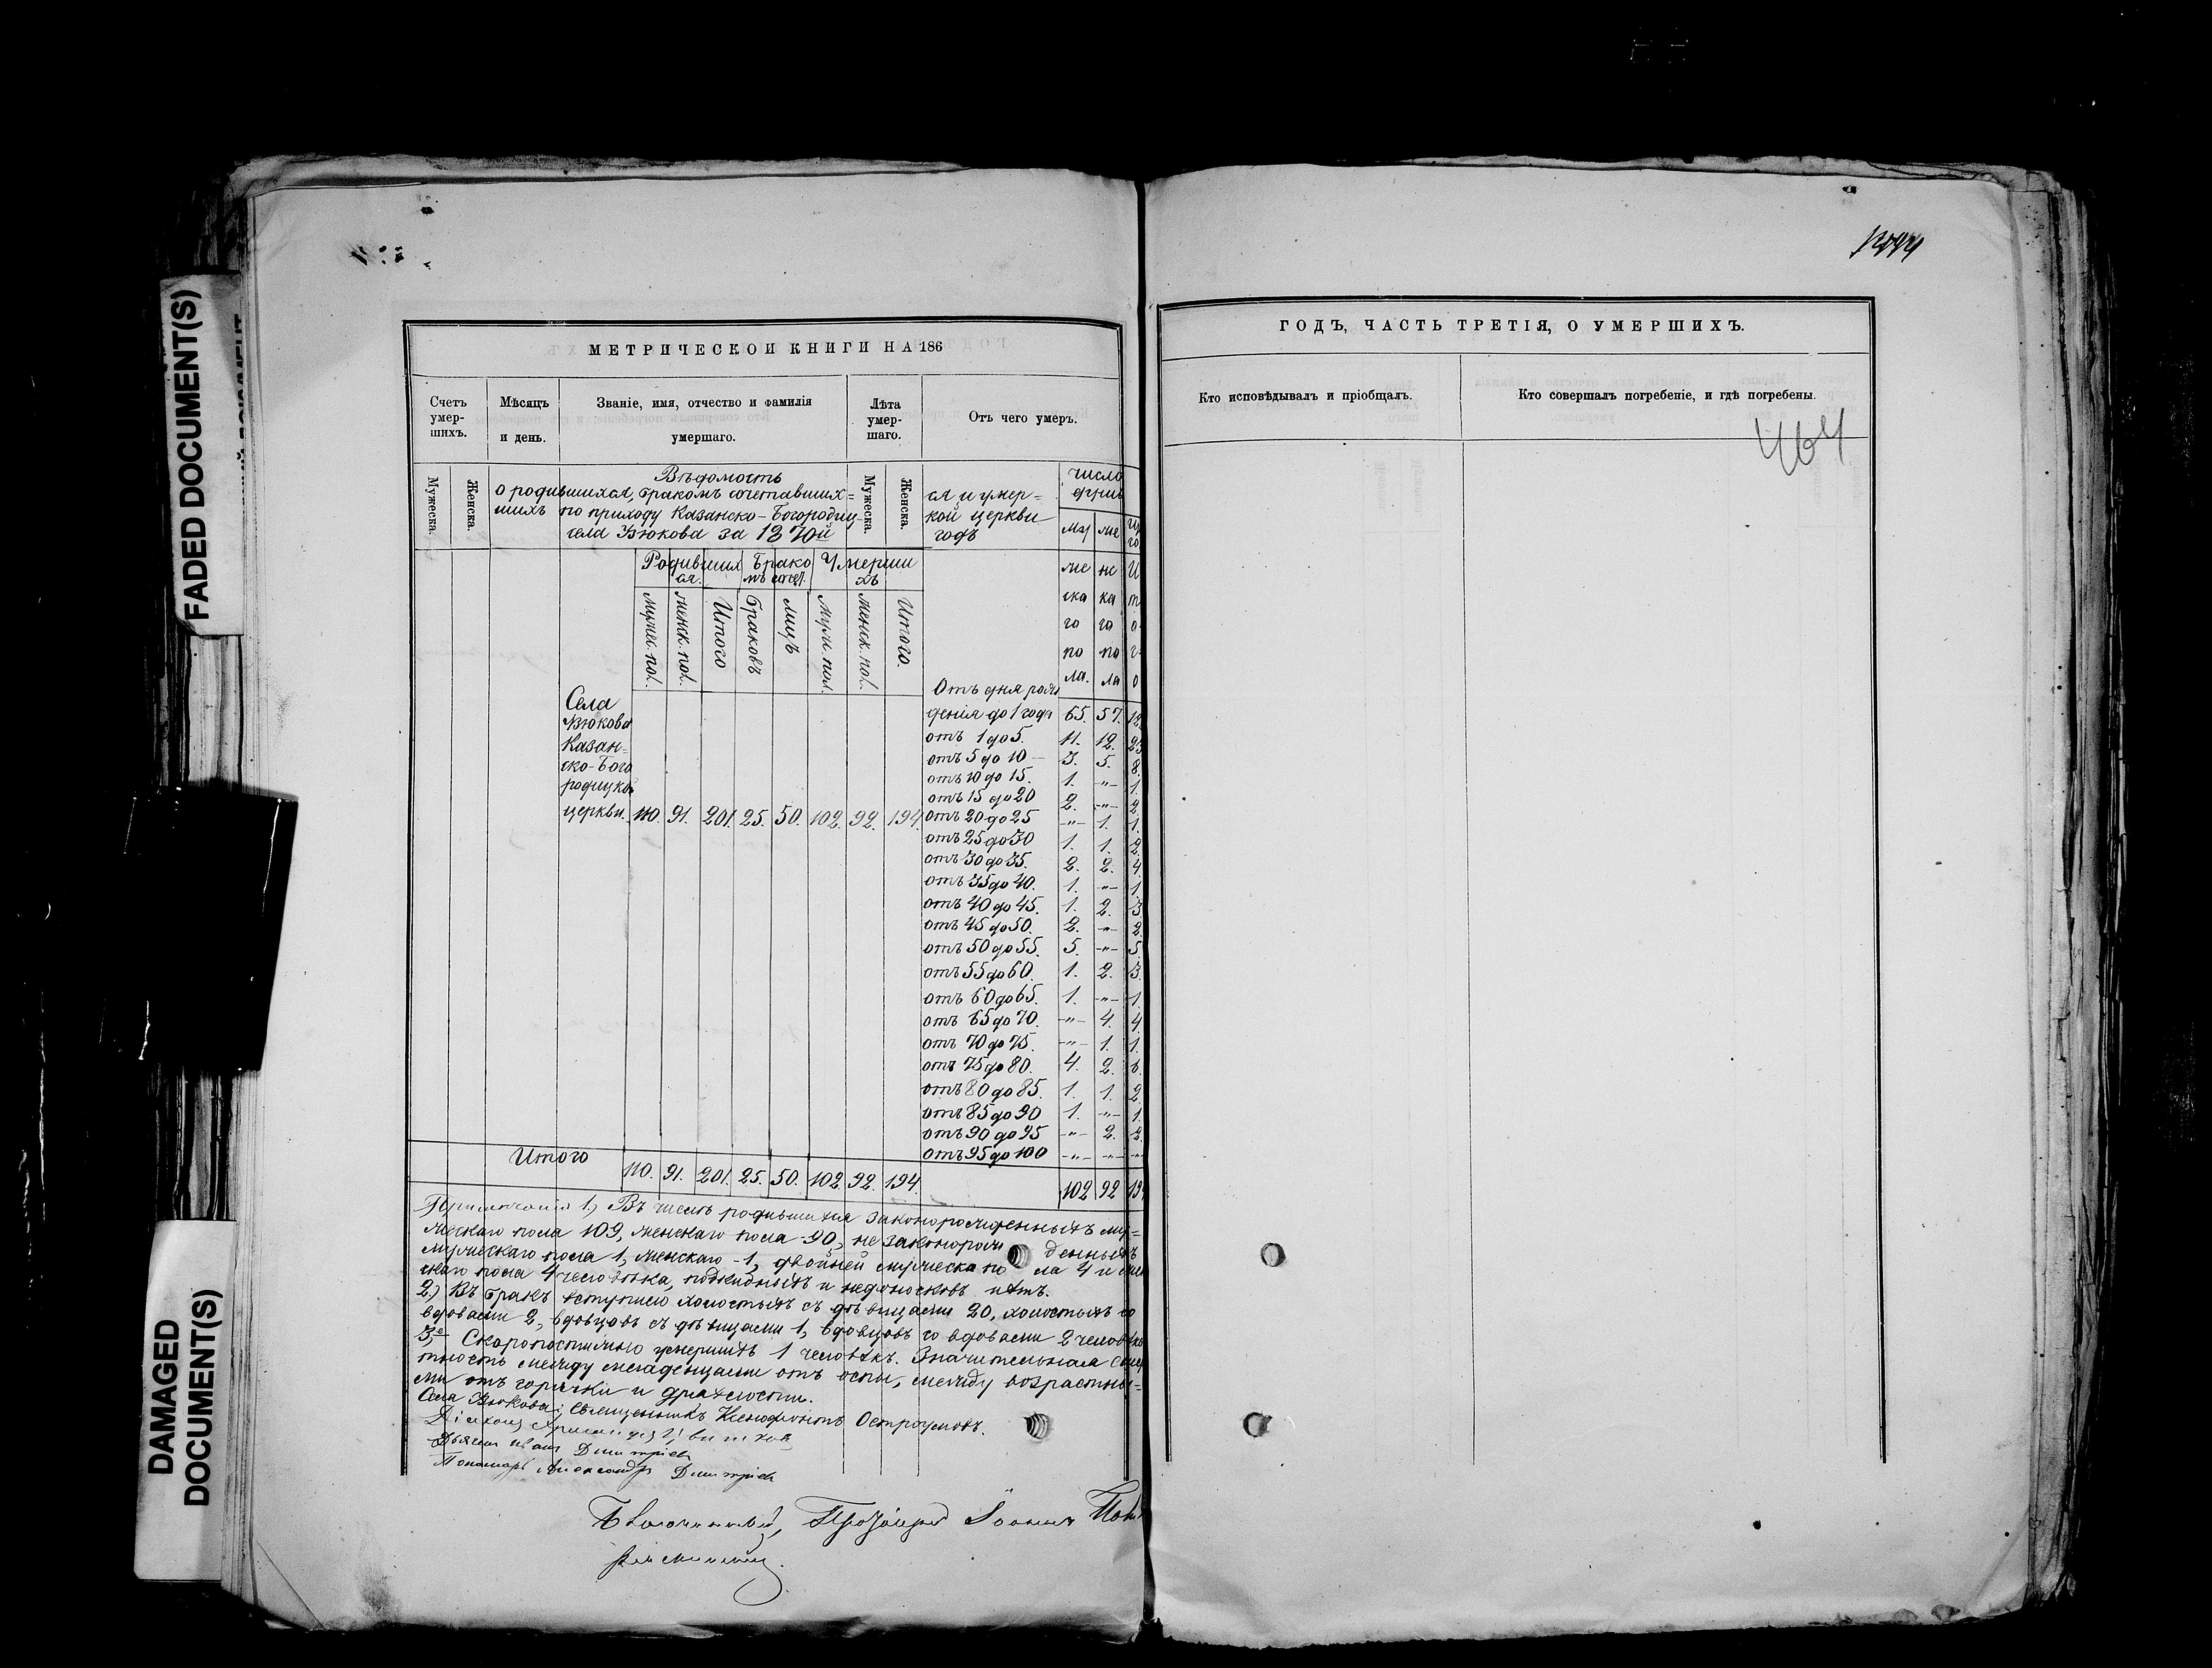 FADED DOCUMENT(S)
DAMAGED
DOCUMENT(S)
МЕТРИЧЕСКОЙ КНИГИ НА 186
Счетъ умер-шихъ.
Мѣсяцъ и день.
Званіе, имя, отчество и фамилія умершаго.
Лѣта умер-шаго.
Отъ чего умеръ.
Мужеска. Женска. Мужеска. Женска.
Вѣдомость
о родившихся, бракомъ сочетавших=ся и умер=
шихъ по приходу Казанско-Богородицкой церкви
села Вюкова за 1870й годъ
число
Родившихся. Бракомъ сочет. Умершихъ
Мужес. пол. Женск. пол. Итого Браковъ Лицъ Муж. пол. Женск. пол. Итого.
мужескаго пола. женскаго пола Итого
Села
Вюкова
Казан=
ско-Бого
родицкой
церкви. 110. 91. 201. 25. 50. 102. 92. 194.
Отъ дня рож
денія до 1 года 65. 57.
отъ 1 до 5. 11. 12. 23
отъ 5 до 10 — 3. 5. 8.
отъ 10 до 15. 1. -„- 1.
отъ 15 до 20 2. -„- 2.
отъ 20 до 25 -„- 1. 1.
отъ 25 до 30 1. 1. 2.
отъ 30 до 35. 2. 2. 4.
отъ 35 до 40. 1. -„- 1.
отъ 40 до 45. 1. 2. 3.
отъ 45 до 50. 2. -„- 2.
отъ 50 до 55. 5. -„- 5.
отъ 55 до 60. 1. 2. 3.
отъ 60 до 65. 1. -„- 1.
отъ 65 до 70. -„- 4. 4.
отъ 70 до 75. -„- 1. 1.
отъ 75 до 80. 4. 2. 6.
отъ 80 до 85. 1. 1. 2.
отъ 85 до 90 1. -„- 1.
отъ 90 до 95 -„- 2. 2.
отъ 95 до 100 -„- -„- -„-
Итого 110. 91. 201. 25. 50. 102. 92. 194. 102 92 194
Примѣчанія 1, Въ числѣ родившихся законорожденныхъ му=
жескаго пола 109, женскаго пола -90, не законорож денныхъ
мужескаго пола 1, женскаго -1, двойней мужеска по ла 4 и жен
скаго пола 4 человѣка, подкидныхъ и недоносковъ нѣтъ.
2.) Въ бракъ вступило холостыхъ съ дѣвицами 20, холостыхъ со
вдовами 2, вдовцовъ съ дѣвицами 1, вдовцовъ со вдовами 2 человѣка
3,е Скоропостижно умершихъ 1 человѣкъ. Значительная смер
тность между младенцами отъ оспы, между возрастны=
ми отъ горячки и дряхлости.
Села Вюкова; Священникъ Ксенофонтъ Остроумовъ.
Діаконъ
Дьячекъ Иванъ Димитріевъ
Пономарь Александръ Димитріевъ
Благочинный, Протоіерей Іоаннъ
ГОДЪ, ЧАСТЬ ТРЕТІЯ, О УМЕРШИХЪ.
Кто исповѣдывалъ и пріобщалъ.
Кто совершалъ погребеніе, и гдѣ погребены.
464